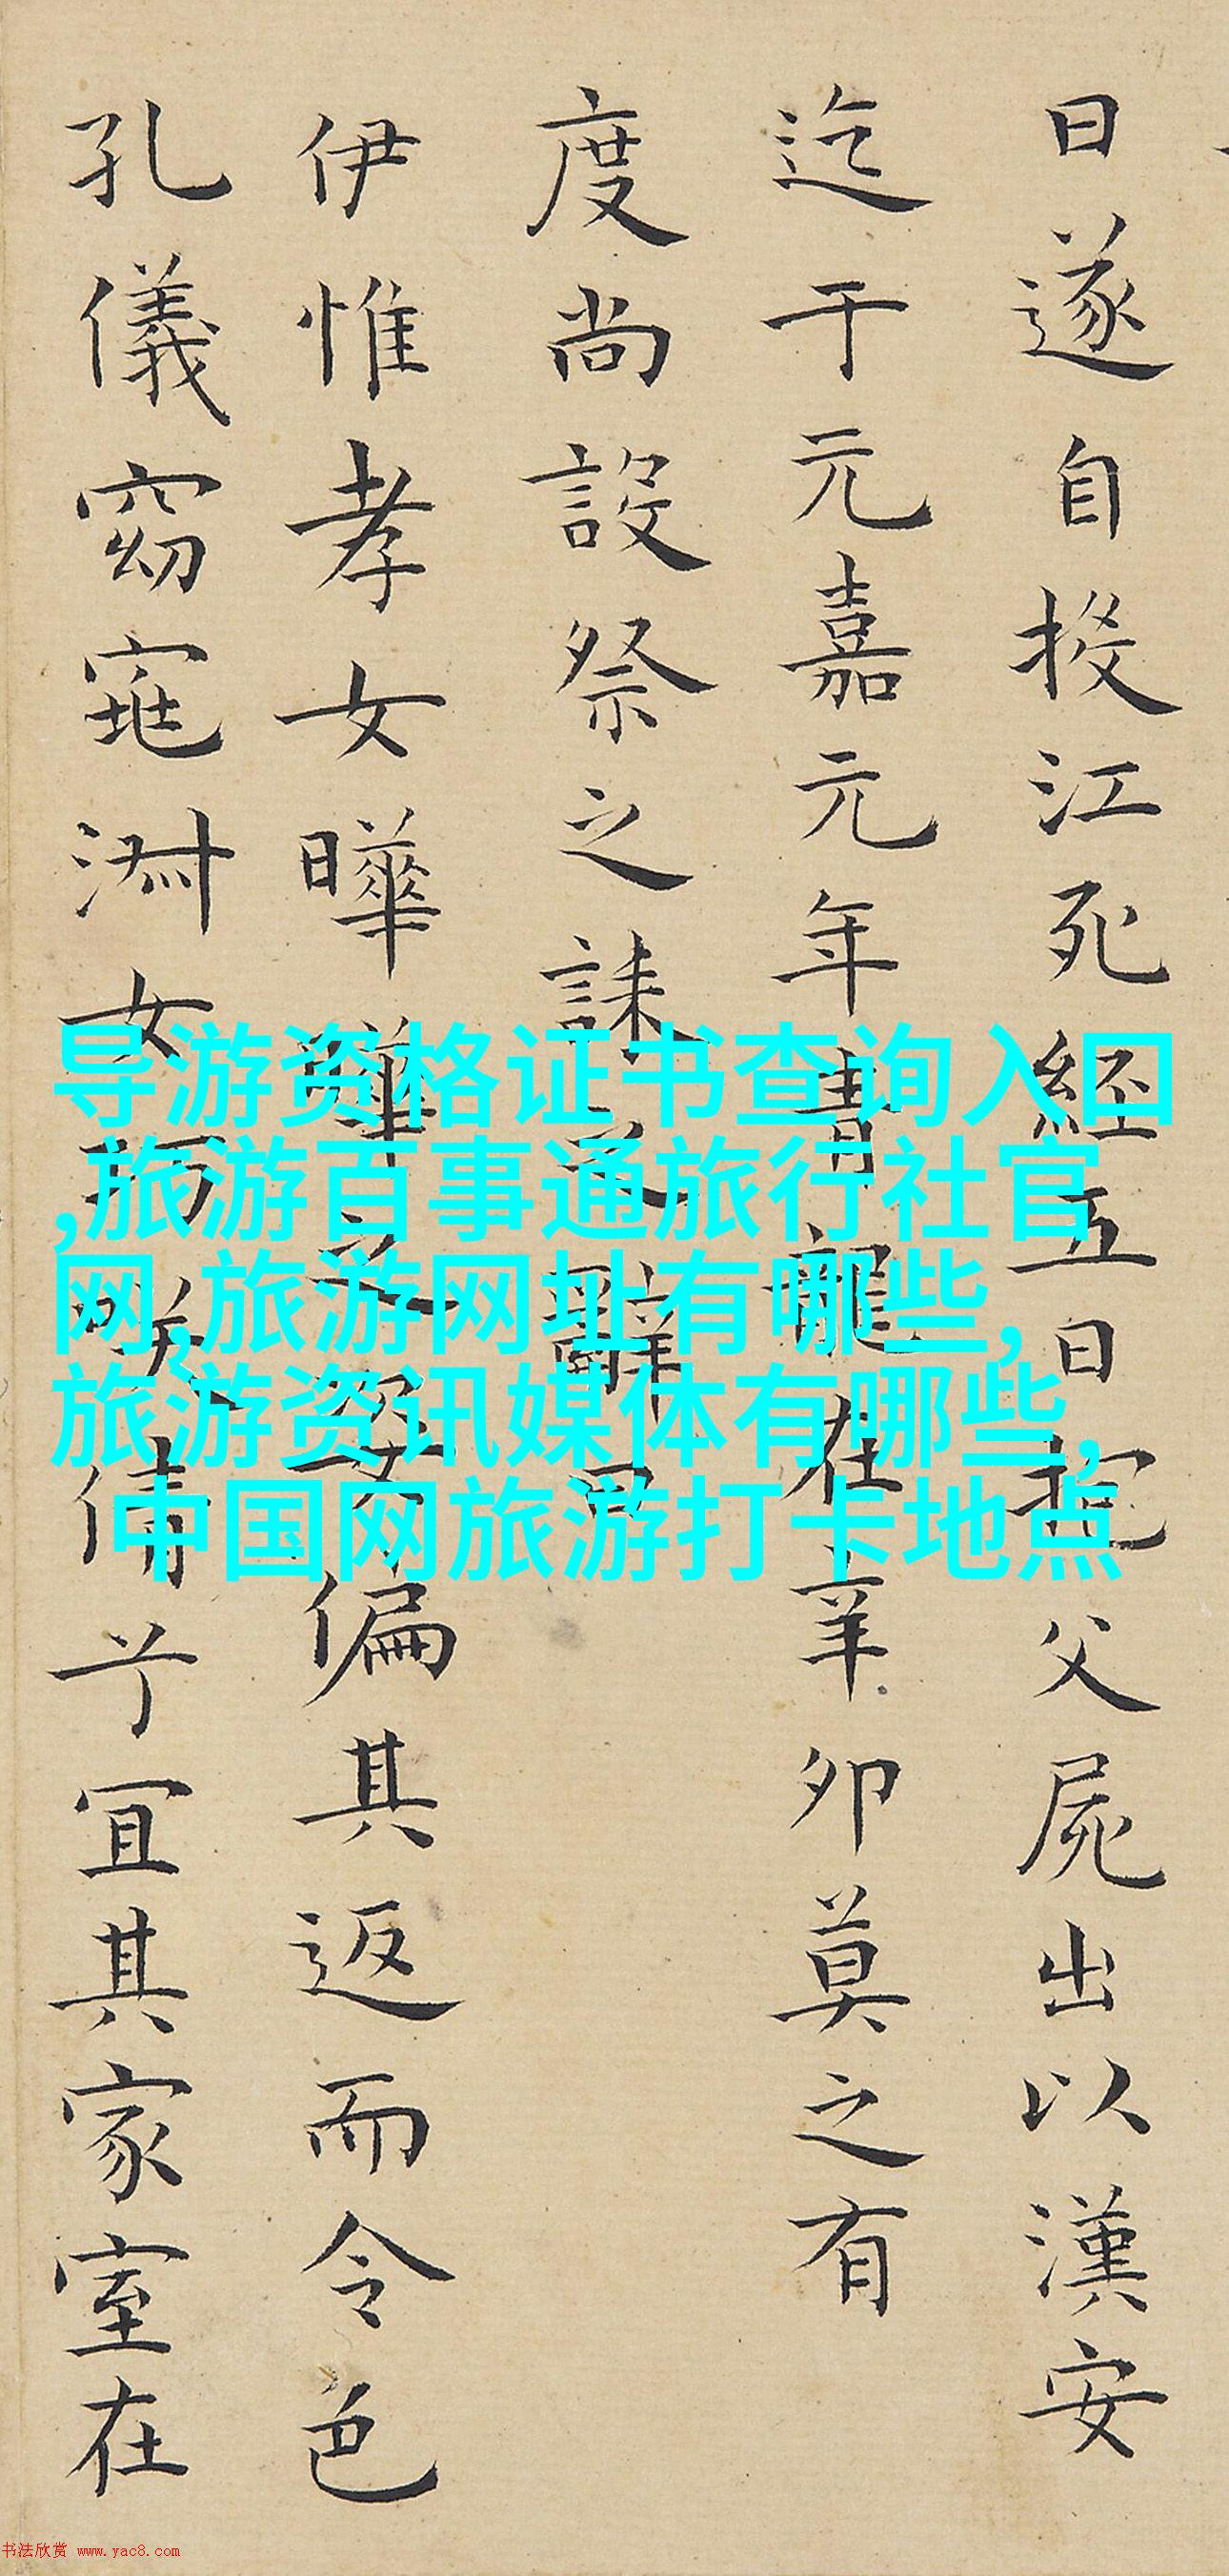 日遂自投江死經五日抱父屍出以漢安
迄于元嘉元年青龍在辛卯莫之有
度尚設祭之誄之辭曰
伊惟孝女曄曄之姿偏其返而令色
孔儀窈窕淑女巧笑倩兮宜其家室在
导游资格证书查询入口
,旅游百事通旅行社官
网,旅游网址有哪些,
旅游资讯媒体有哪些,
中国网旅游打卡地点
书法欣赏 www.yac8.com